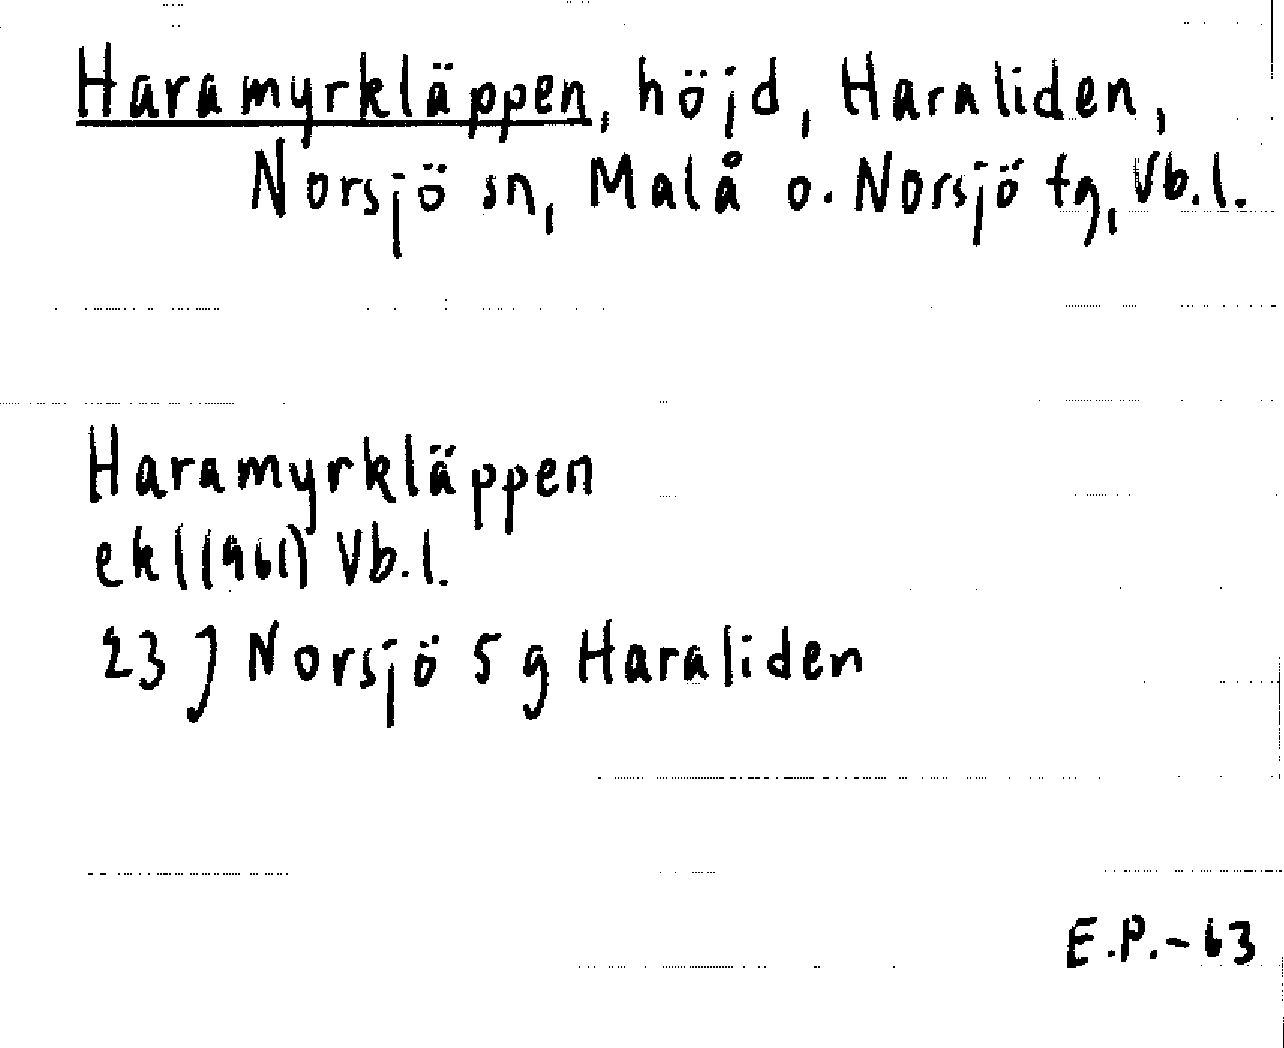 Haramyrkläppen, höjd, Haraliden,
Norsjö sn, Malå o. Norsjö tg, Vb.l.
Haramyrkläppen
ekl (1961) Vb.l.
23 J Norsjö 5 g Haraliden
E.P.-63